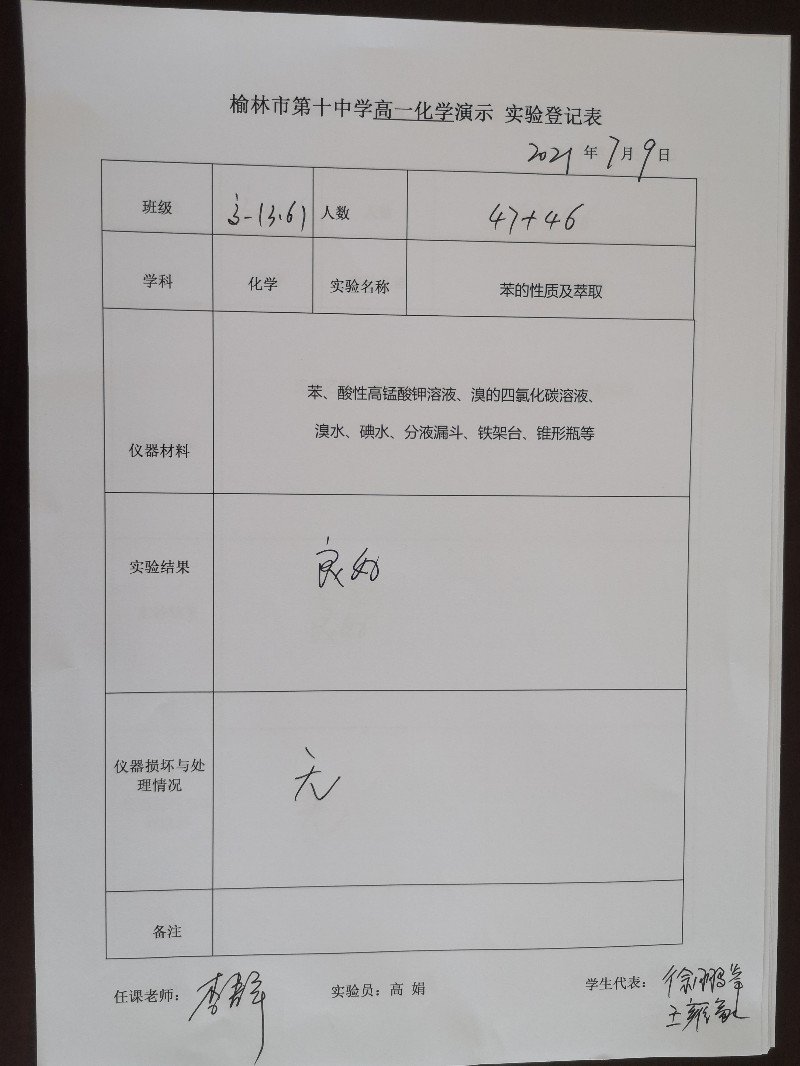 榆林市第十中学高一化学演示 实验登记表
2021年7月9日
班级 高一(3.6) 人数 47+46
学科 化学 实验名称 苯的性质及萃取
苯、酸性高锰酸钾溶液、溴的四氯化碳溶液、
溴水、碘水、分液漏斗、铁架台、锥形瓶等
仪器材料
实验结果 良好
仪器损坏与处
理情况
无
备注
任课老师： 实验员：高 娟 学生代表：